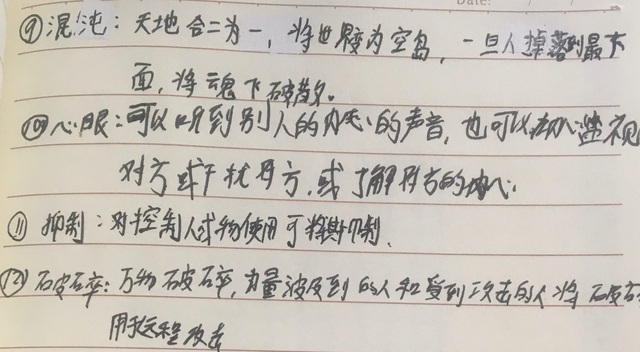 Date:
⑨混沌:天地合二为一,将世界变为空岛,一旦人掉落到最下
面,将魂飞破散。
⑩心眼:可以听到别人的内心的声音,也可以透视
对方或干扰对方,或了解对方的内心.
⑪抑制:对控制人或物使用可将其抑制.
⑫破碎:万物破碎,力量波及到的人和受到攻击的人将破碎
用于远程攻击